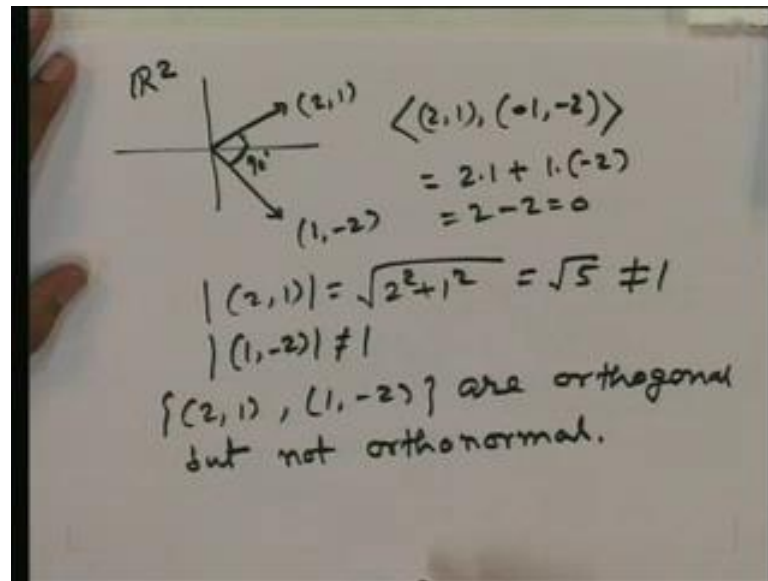 ℝ²
(2,1)
90°
(1,-2)
⟨(2,1), (1,-2)⟩
= 2·1 + 1·(-2)
= 2-2=0
|(2,1)| = √(2²+1²) = √5 ≠ 1
|(1,-2)| ≠ 1
{(2,1), (1,-2)} are orthogonal
but not orthonormal.